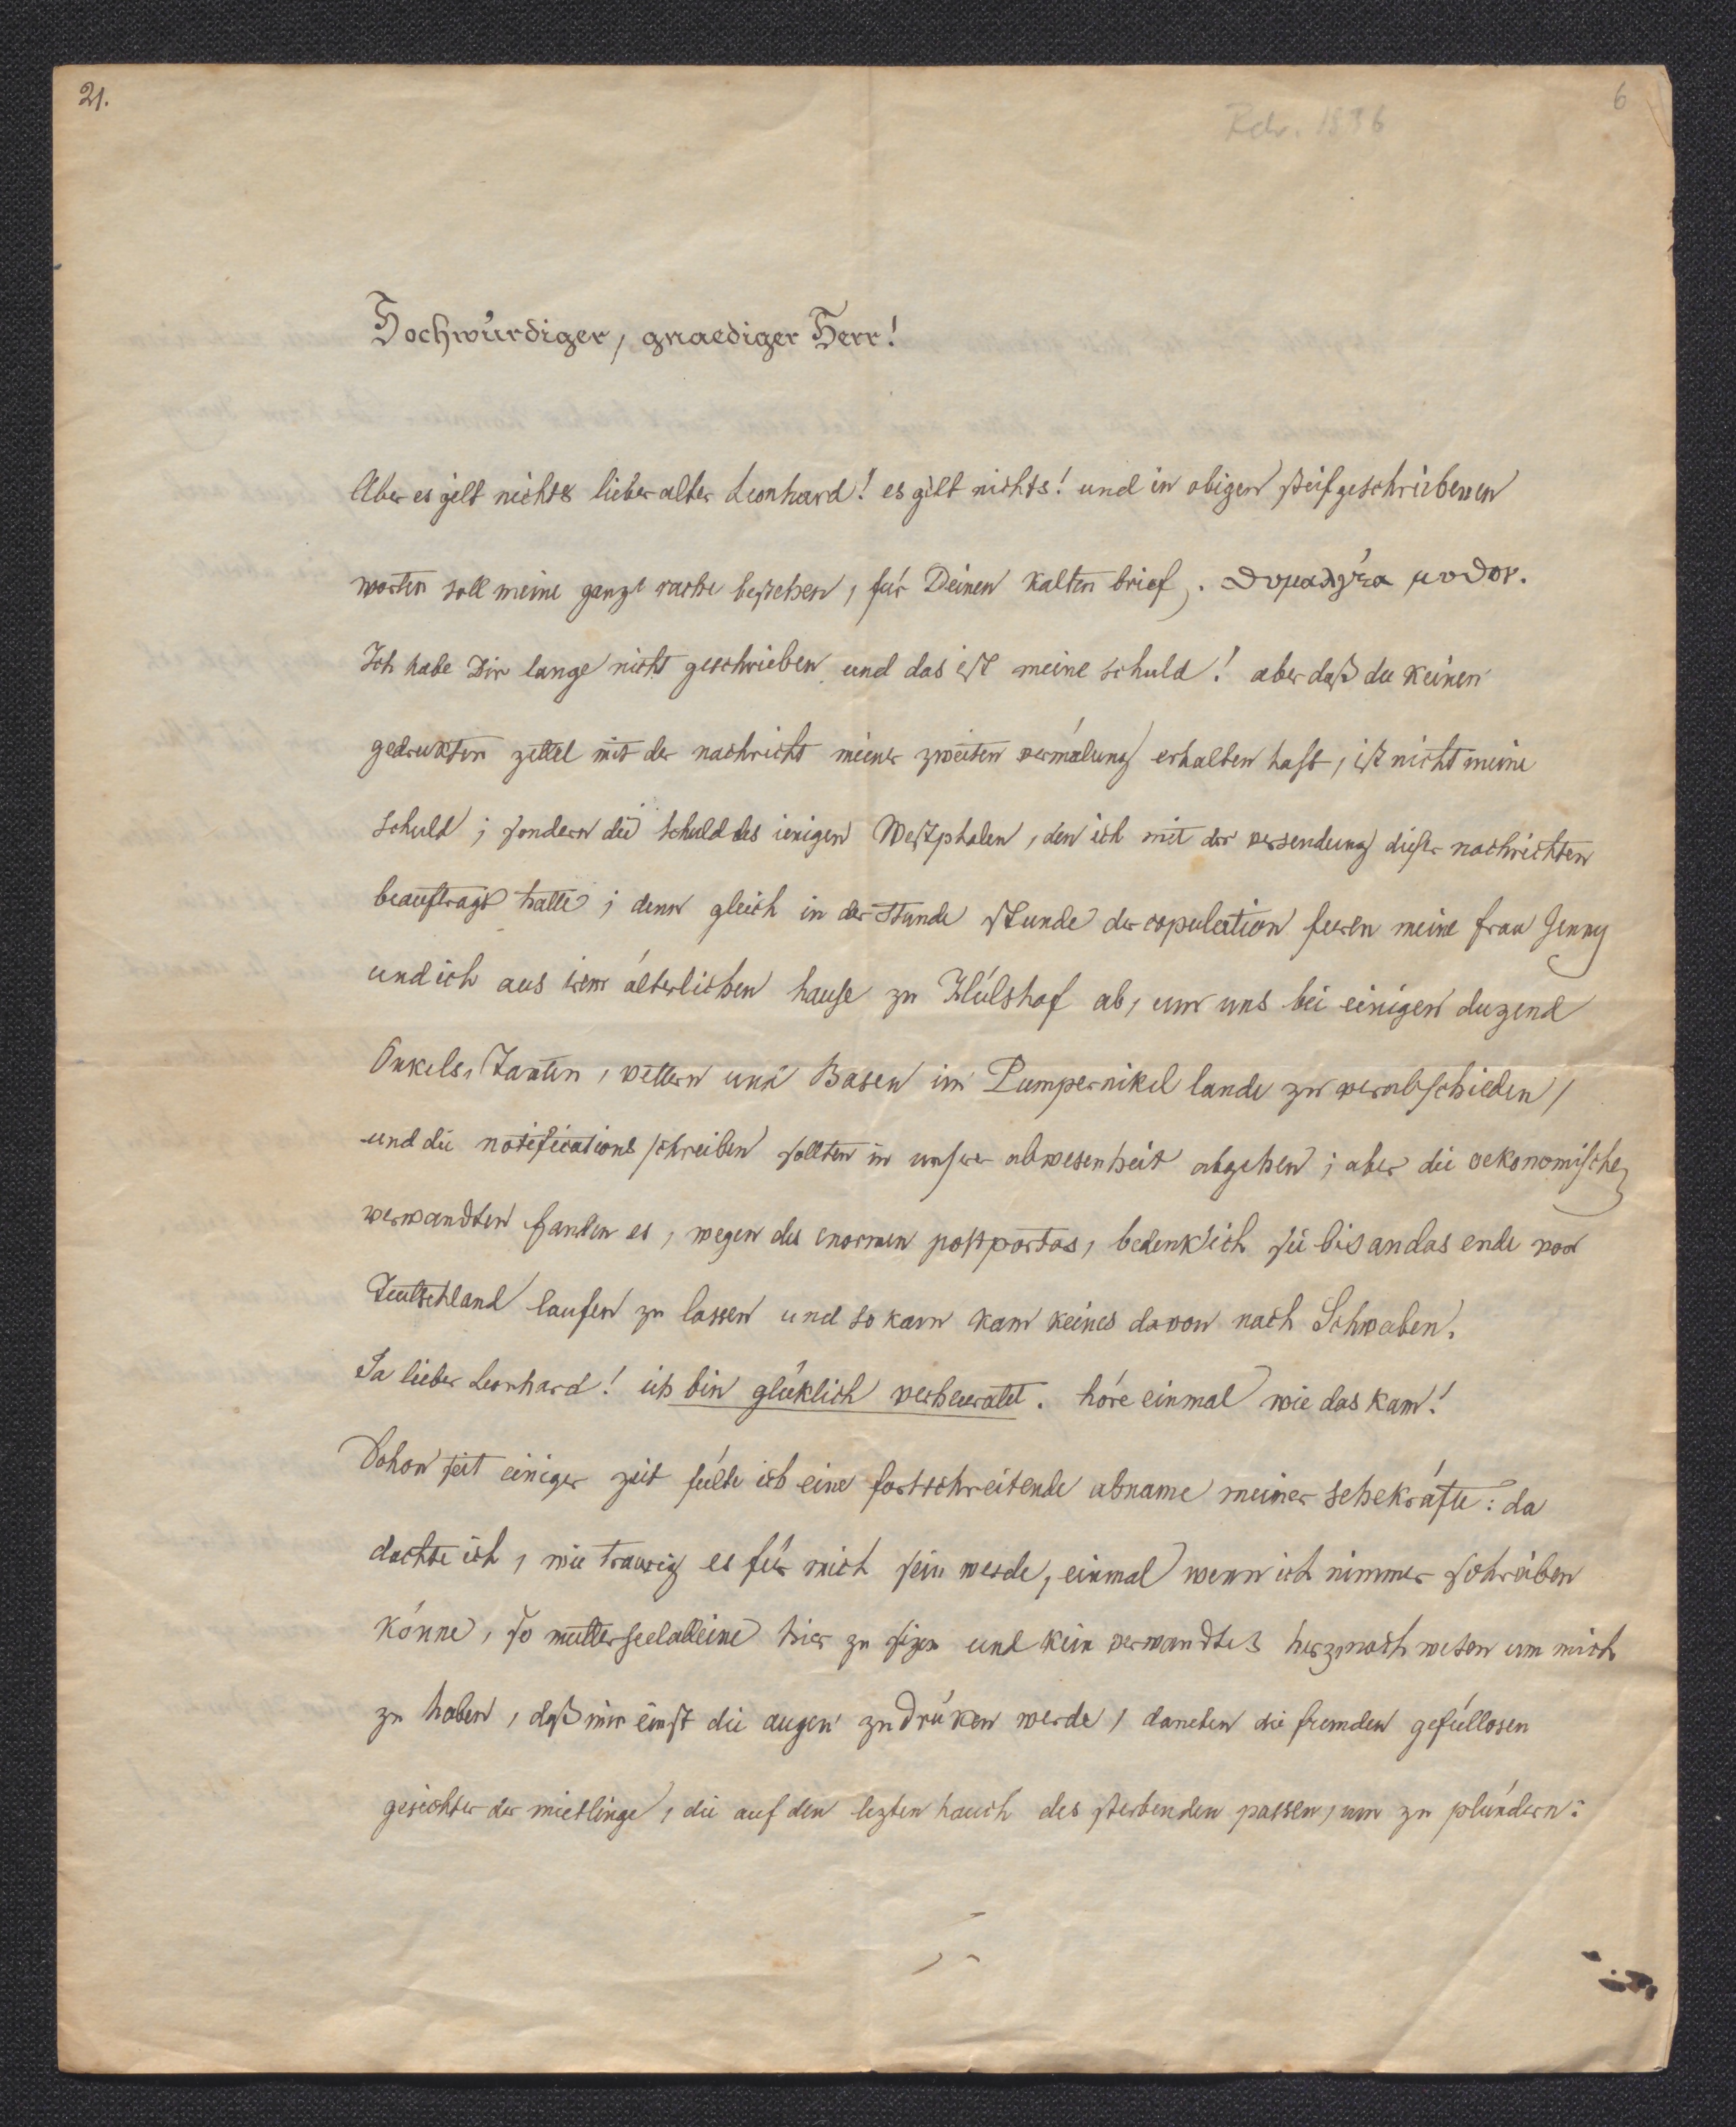 21.
6
1836
Hochwürdiger, gnaediger Herr!
Aber es gilt nichts lieber alter Leonhard! es gilt nichts! und in obigen steifgeschriebenen
worten soll meine ganze rache bestehen, für Deinen kalten brief, . θυμαλγέα μυθον.
Ich habe Dir lange nicht geschrieben und das ist meine schuld! aber daß du keinen
gedrukten zettel mit der nachricht meiner zweiten vermälung erhalten hast, ist nicht meine
schuld; sondern die schuld des ienigen Westphalen, den ich mit der versendung dieser nachrichten
beauftragt hatte; denn gleich in der stunde stunde der copulation furen meine frau Jenny
und ich aus irem älterlichen hause zu Hülshof ab, um uns bei einigen duzend
Onkels, Tanten, vettern und Basen im Pumpernikel lande zu verabschieden,
und die notifications schreiben sollten in unserer abwesenheit abgehen; aber die oekonomischen
verwandten fanden es, wegen des enormen postportos, bedenklich sie bis an das ende von
Teutschland laufen zu lassen und so kam kam keines davon nach Schwaben.
Ja lieber Leonhard! ich bin glüklich verheuratet. höre einmal wie das kam!
Schon seit einiger zeit fülte ich eine fortschreitende abname meiner sehekräfte: da
dachte ich, wie traurig es für mich sein werde, einmal wenn ich nimmer schreiben
könne, so mutterseelalleine hier zu sizen und kein verwandtes herz noch wesen um mich
zu haben, daß mir einst die augen zudrüken werde, daneben die fremden gefüllosen
gesichter der mietlinge, die auf den lezten hauch des sterbenden passen, um zu plündern: